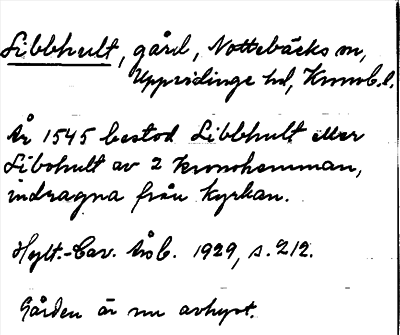 Libbhult, gård, Nottebäcks sn,
Uppvidinge hd, Kronob. l.
År 1545 bestod Libbhult eller
Libohult av 2 kronohemman,
indragna från kyrkan.
Hylt.-Cav. Årsb. 1929, s. 212.
Gården är nu avhyst.